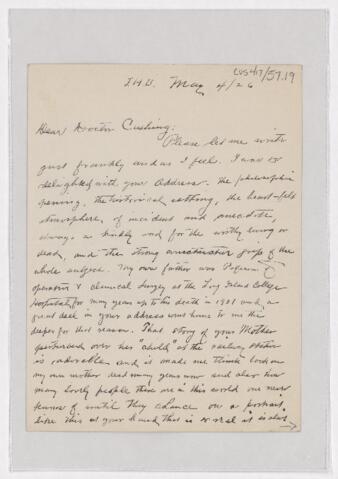 CUS417/57.19
I.H.D. May 4/26
Dear Doctor Cushing:
Please let me write
just frankly and as I feel. I was so
delighted with your address. The philosophic
opening, the historical setting, the heart-felt
atmosphere, of incident and anecdote,
always a kindly word for the worthy living or
dead, and the strong constructive grip of the
whole subject. My own father was Professor of
operative & clinical surgery at the Long Island College
Hospital for many years up to his death in 1901 and a
great deal in your address went home to me the
deeper for that reason. That story of your Mother
perturbed over her "child" at the railway station
is adorable and it made me think back on
my own mother dead many years now and also how
many lovely people there are in this world one never
knows of until they chance on a portrait
like this at your hand, that is so real it is alive